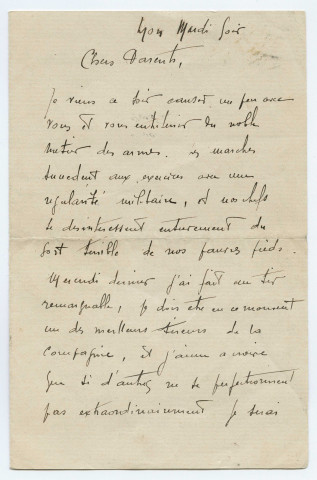 Lyon Mardi Soir
Chers Parents,
Je viens ce soir causer un peu avec
vous et vous entretenir du noble
métier des armes. Les marches
succèdent aux exercices avec une
régularité militaire, et nos chefs
se désintéressent entièrement du
sort terrible de nos pauvres pieds.
Mercredi dernier j'ai fait un tir
remarquable, je dois être en ce moment
un des meilleurs tireurs de la
compagnie, et j'aime à croire
que si d'autres ne se perfectionnent
pas extraordinairement je serai